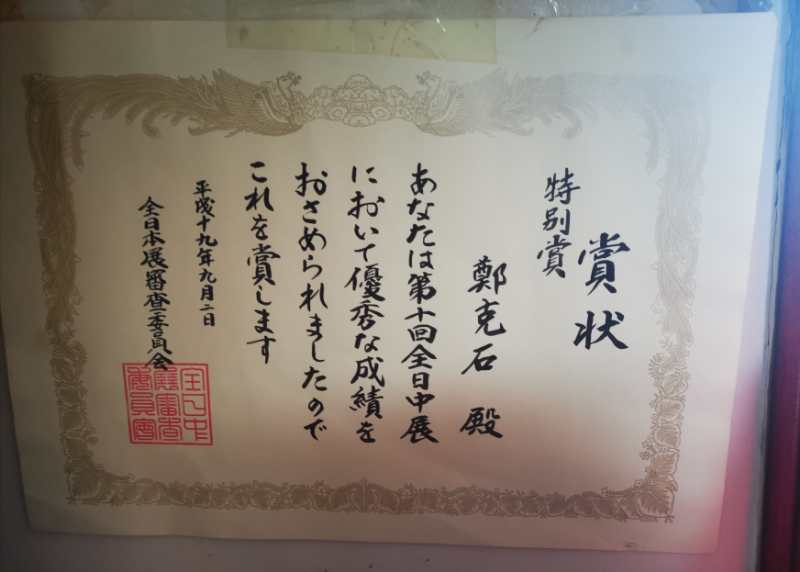 賞状
特別賞
鄭克石 殿
あなたは第十回全日中展
において優秀な成績を
おさめられましたので
これを賞します
平成十九年九月二日
全日本展審査委員会